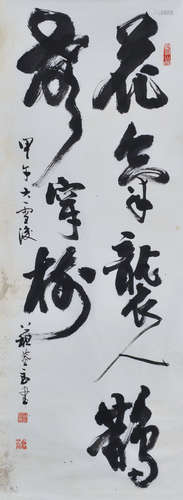 花氣襲人鵲
聲穿樹
甲午大雪後
書